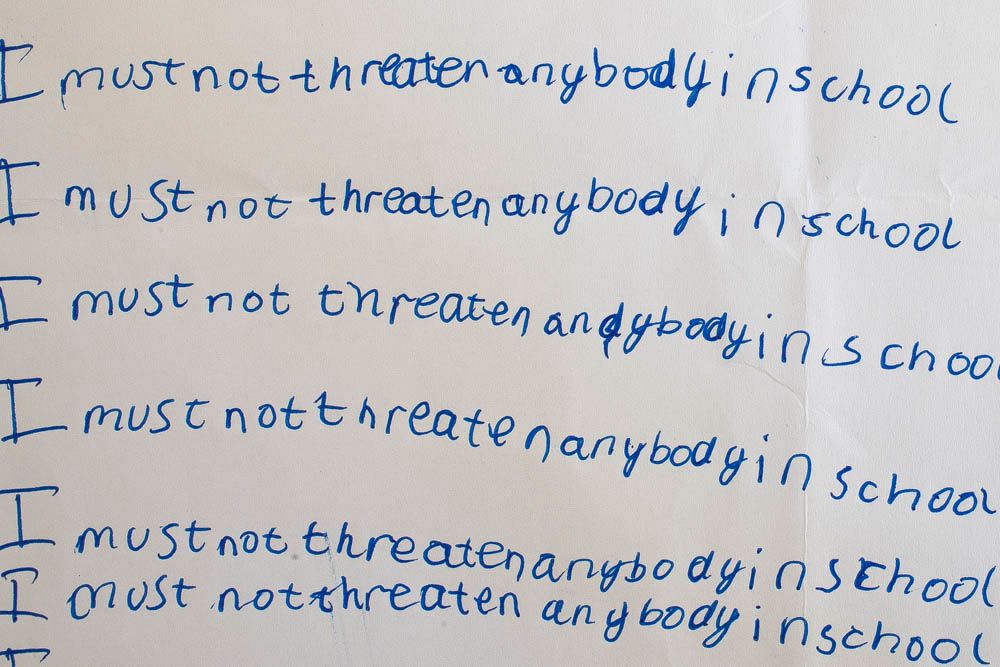 I must not threaten anybody in school
I must not threaten anybody in school
I must not threaten andybody in school
I must not threaten anybody in school
I must not threaten anybody in school
I must not threaten anybody in school
I